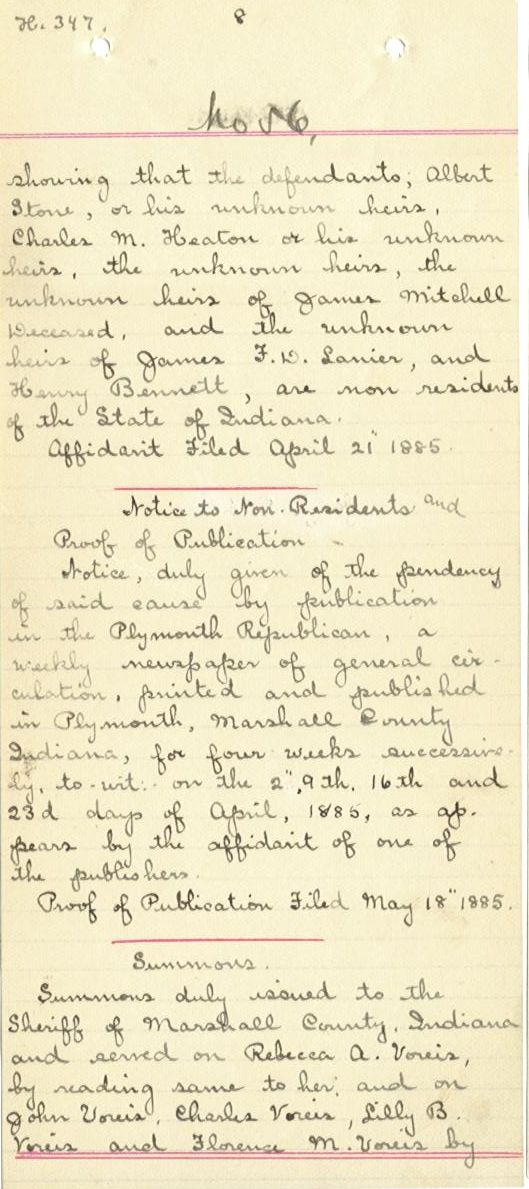 H. 347.
8
No 56,
showing that the defendants, Albert
Stone, or his unknown heirs,
Charles M. Heaton or his unknown
heirs, the unknown heirs, the
unknown heirs of James Mitchell
Deceased, and the unknown
heirs of James F. D. Lanier, and
Henry Bennett, are non residents
of the State of Indiana.
Affidavit Filed April 21" 1885.
Notice to Non-Residents and
Proof of Publication -
Notice, duly given of the pendency
of said cause by publication
in the Plymouth Republican, a
weekly newspaper of general cir-
culation, printed and published
in Plymouth, Marshall County
Indiana, for four weeks successive-
ly, to-wit:- on the 2", 9th, 16th and
23d days of April, 1885, as ap-
pears by the affidavit of one of
the publishers.
Proof of Publication Filed May 18" 1885.
Summons.
Summons duly issued to the
Sheriff of Marshall County, Indiana
and served on Rebecca A. Voreis,
by reading same to her; and on
John Voreis, Charles Voreis, Lilly B.
Voreis and Florence M. Voreis by